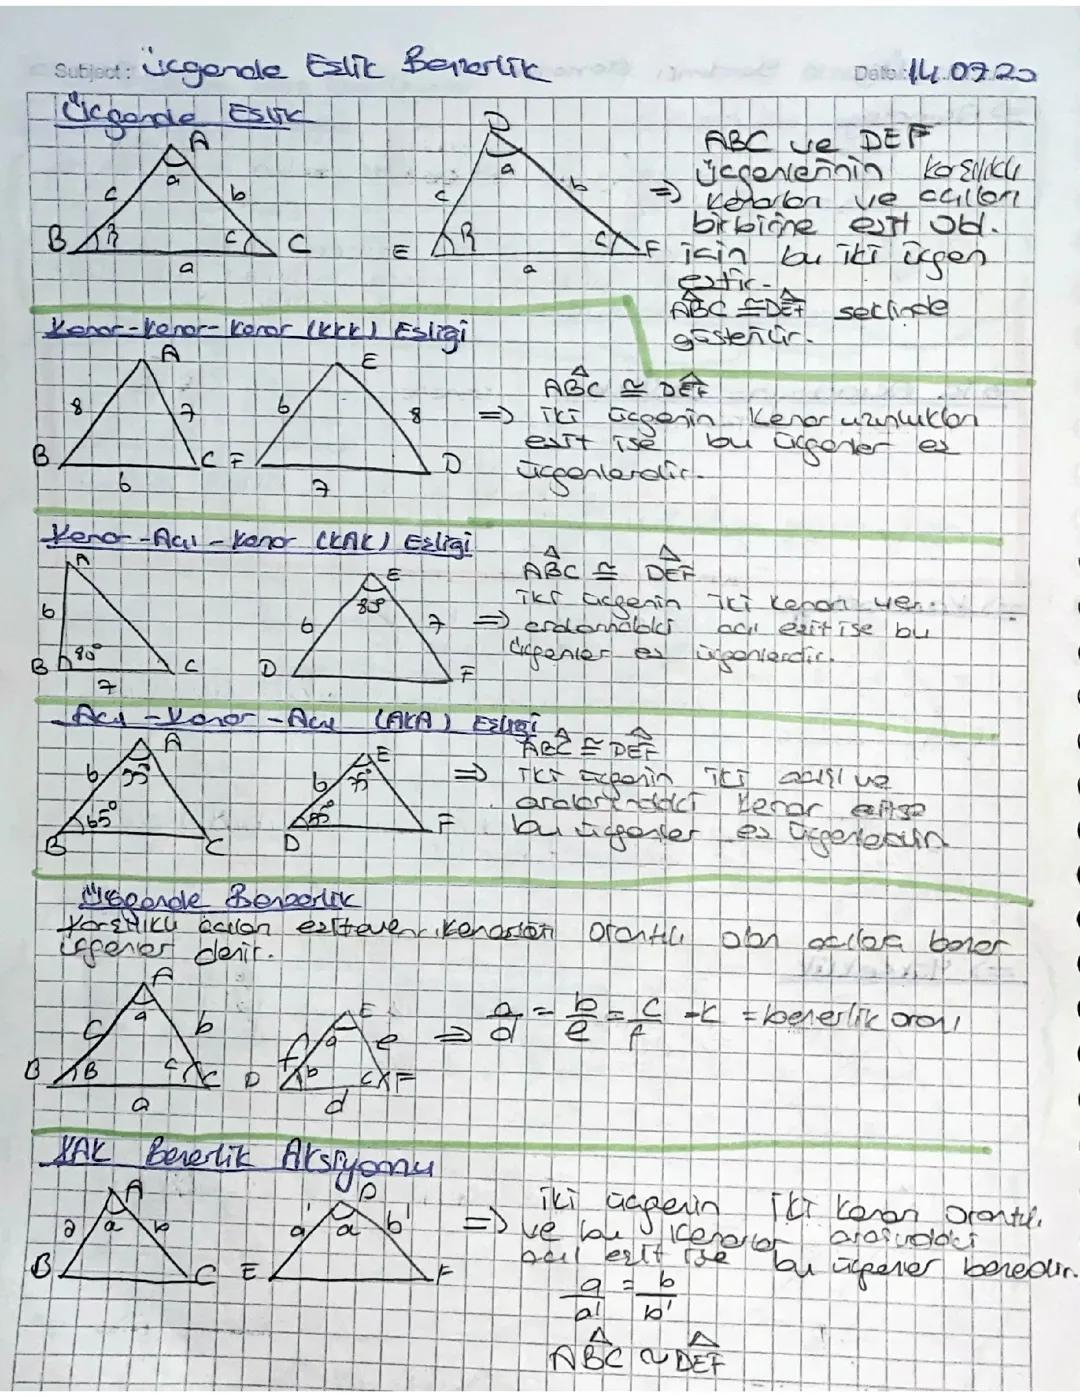 Subject: üçgende Eşlik Benzerlik Date: 14.09.20
Üçgende Eşlik
A
D
a
a
c b c b
B B c C E B c F
a a
ABC ve DEF
üçgenlerinin karşılıklı
⇒ kenarları ve açıları
birbirine eşit old.
için bu iki üçgen
eştir.
ABC ≅ DEF şeclinde
gösterilir.
Kenar-Kenar-Kenar (KKK) Eşliği
A E
8 7 6 8
B C F D
6 7
ABC ≅ DEF
⇒ iki üçgenin kenar uzunlukları
eşit ise bu üçgenler eş
üçgenlerdir.
Kenar-Açı-Kenar (KAK) Eşliği
A E
6 6 7
B 80° C D F
7
ABC ≅ DEF
iki üçgenin iki kenarı ve
⇒ açı eşit ise bu
üçgenler eş üçgenlerdir.
Açı-Kenar-Açı (AKA) Eşliği
A E
6 75° 6 75°
65°
B C D F
ABC ≅ DEF
⇒ iki üçgenin iki açısı ve
aralarındaki kenar eşitse
bu üçgenler eş
Üçgende Benzerlik
Karşılıklı açıları eşit kenarları orantılı olan benzer
üçgenler denir.
A E
a a
c b f e
B B c C D b c F
a d
⇒ a/d = b/e = c/f = k = benzerlik oranı
KAK Benzerlik Aksiyomu
A D
a a b a' a b'
B C E F
iki üçgenin iki kenarı orantılı
⇒ ve bu kenarlar arasındaki
açı eşit ise bu üçgenler benzerdir.
a/a' = b/b'
ABC ~ DEF